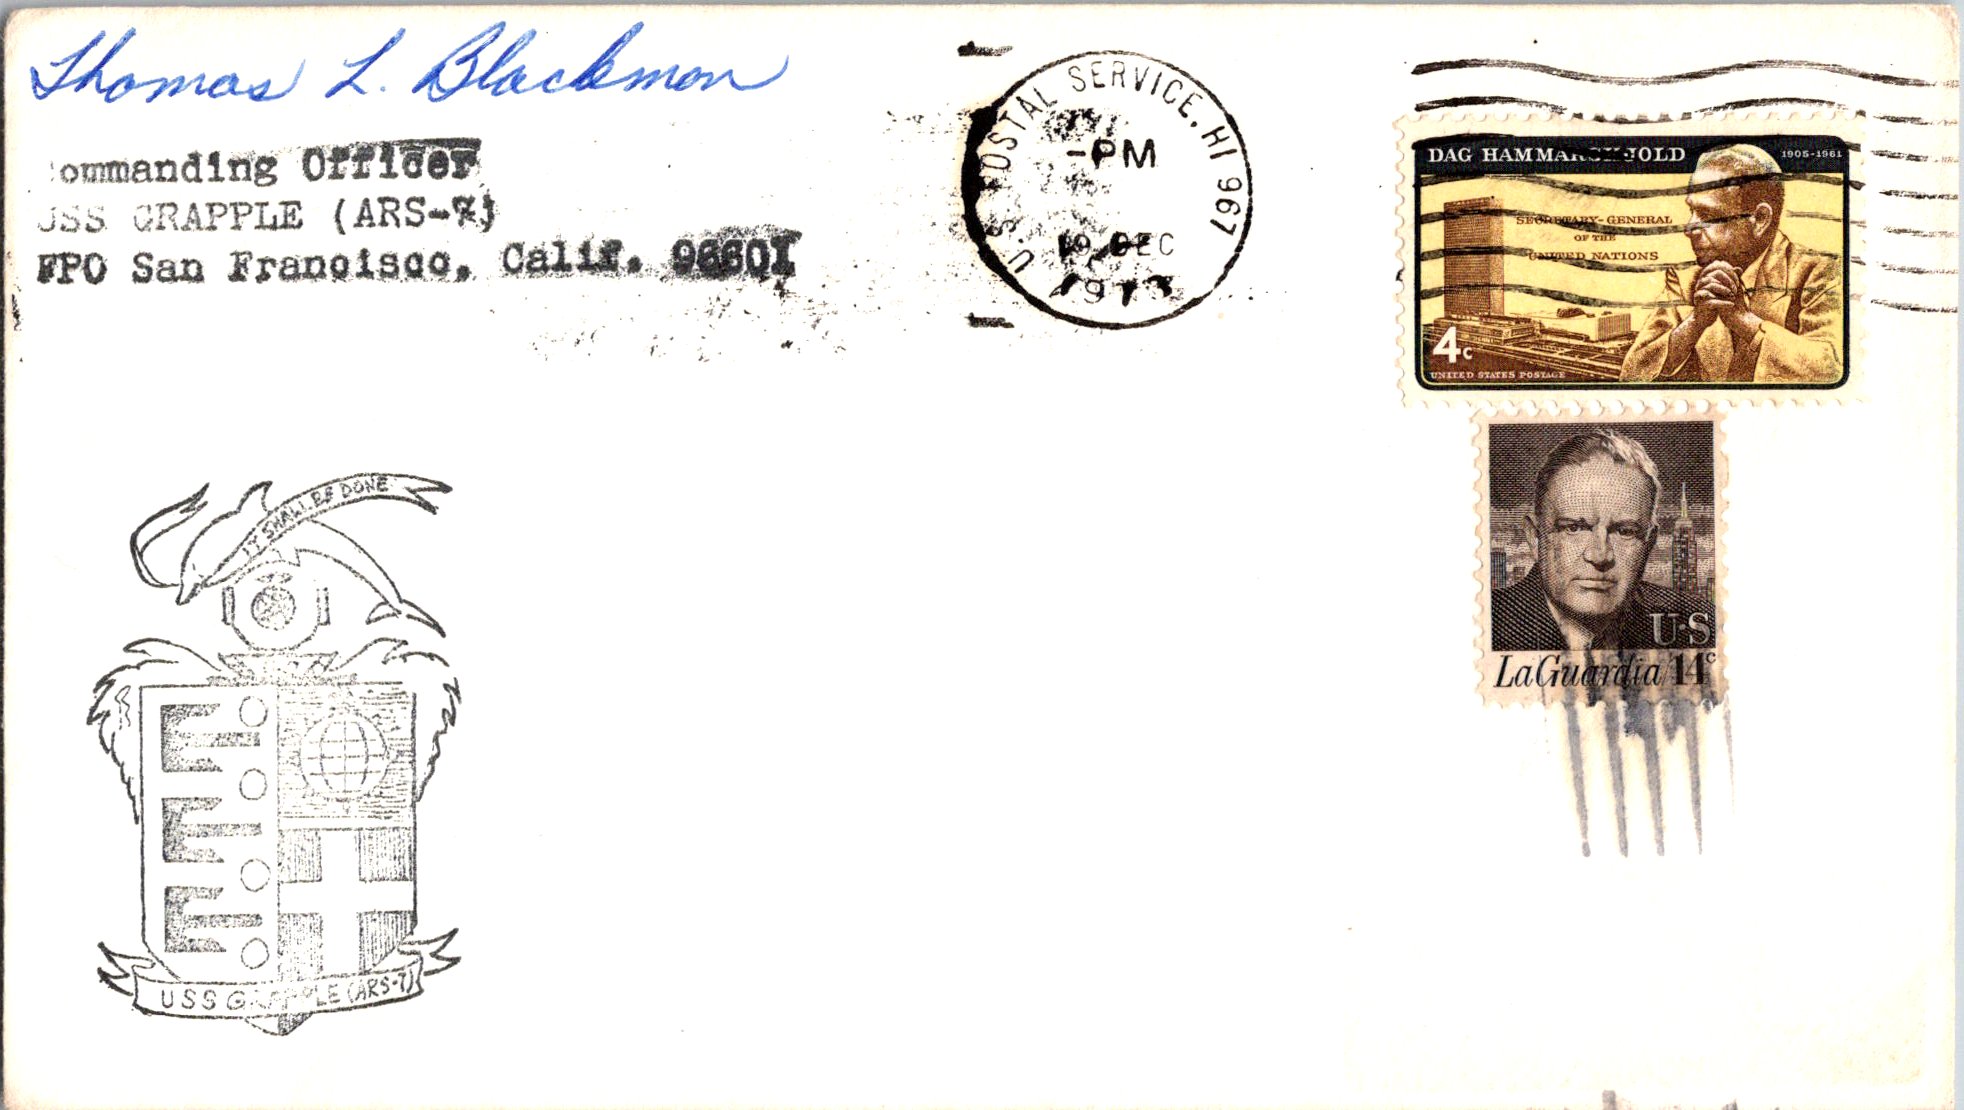 Thomas L. Blackmon
Commanding Officer
USS GRAPPLE (ARS-7)
FPO San Francisco, Calif. 96601
U.S. POSTAL SERVICE, HI 967
PM
19 DEC
1973
DAG HAMMARSKJOLD
1905-1961
SECRETARY-GENERAL
OF THE
UNITED NATIONS
4c
UNITED STATES POSTAGE
US
LaGuardia 14c
IT SHALL BE DONE
USS GRAPPLE (ARS-7)